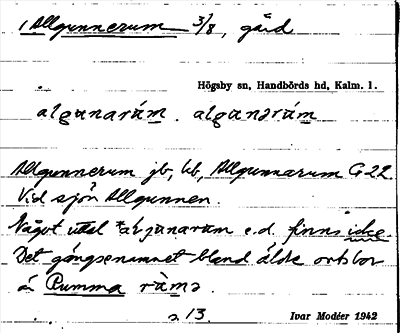 1 Allgunnerum 3/8, gård
Högsby sn, Handbörds hd, Kalm. l.
algunarám . algunərám
Allgunnerum jb, kb, Allgunnarum G 22
Vid sjön Allgunnen.
Något uttal *aljunaram e.d. finns icke.
Det gängse namnet bland äldre ortsbor
är Rumma ràmə
s 13. Ivar Modéer 1942